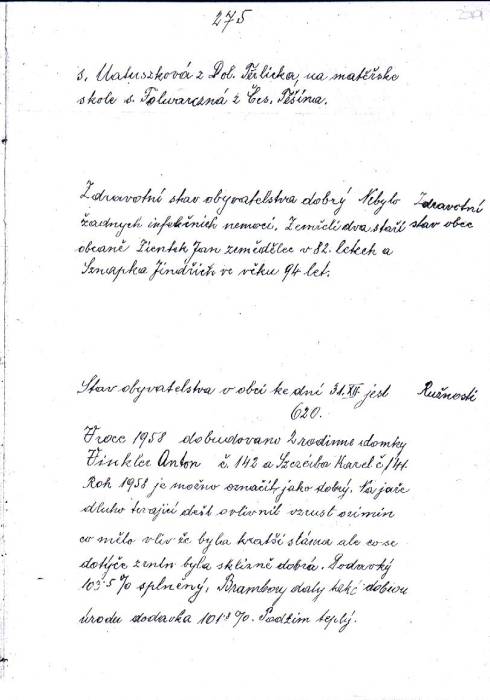 275
s. Matuszková z Dol. Těrlicka, na matěřske
skole s. Folwarczná z Čes. Těšína.
Zdravotní stav obyvatelstva dobrý Nebylo
žadnych infekčních nemocí. Zemřeli dva staří
obcaně Pientek Jan zemědělec v 82. letech a
Sznapka Jindřich ve věku 94 let.
Zdravotní
stav obce
Stav obyvatelstva v obci ke dni 31. XII. jest
620.
Ružnosti
V roce 1958 dobudovano 2 rodinne domky
Finkler Anton č. 142 a Szczeiba Karel č 141.
Rok 1958 je možno označit jako dobrý. Na jaře
dluho tvající dešt ovlivnil vzrust ozimin
co mělo vliv že byla kratší sláma ale co se
dotýče zrnin byla sklizně dobrá. Dodavky
103.5 % splněný. Brambory daly také dobrou
úrodu dodavka 101.8 %. Podzim teplý.